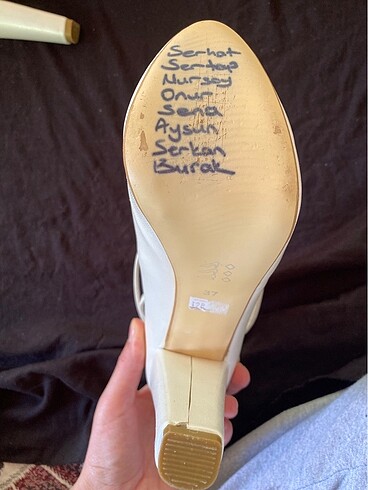 Serhat
Sertap
Nursoy
Onur
Sena
Aysun
Serkan
Burak
37